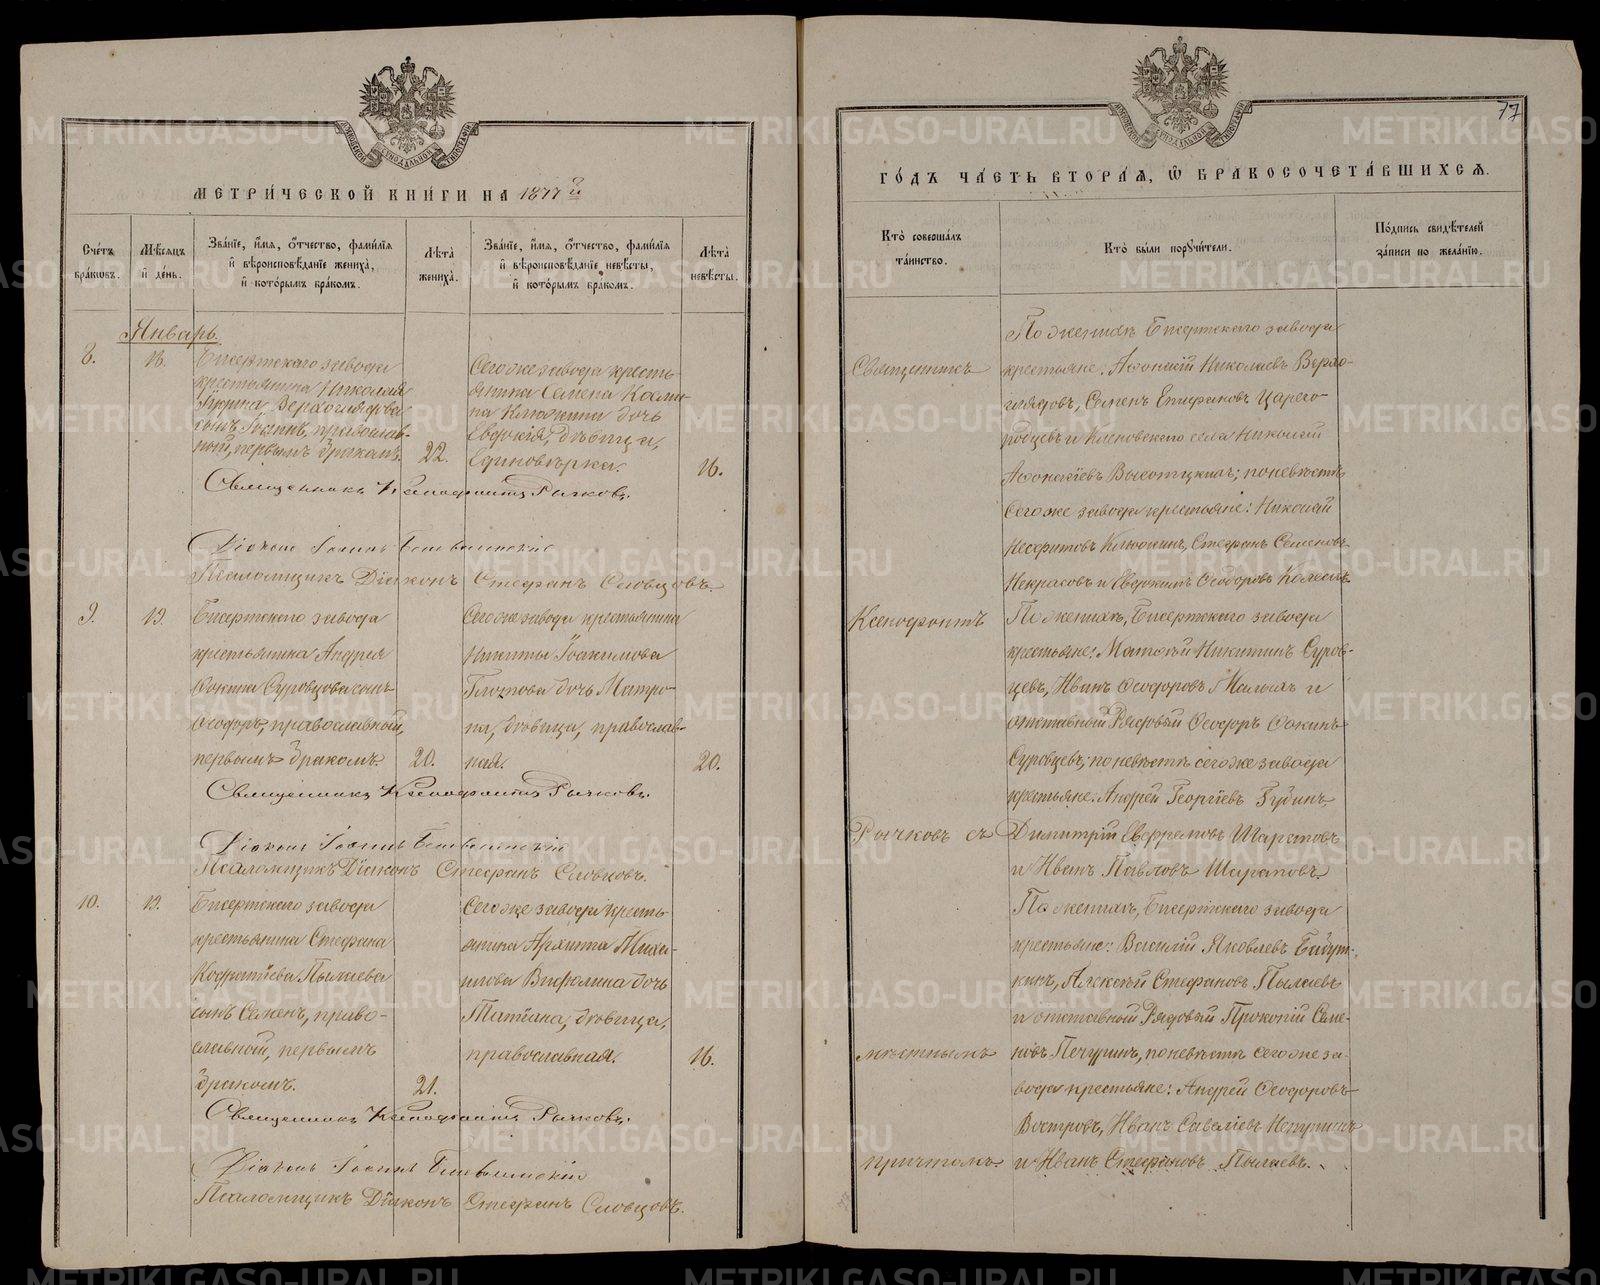 МЕТРИ́ЧЕСКОЙ КНИ́ГИ НА 1877 й
Сче́тъ бра́ковъ.
Мѣ́сяцъ и҆ де́нь.
Зва́нїе, и҆́мя, ѻ҆́тчество, фами́лїя и҆ вѣроисповѣ́данїе жениха̀, и҆ кото́рымъ бра́комъ.
Лѣ́та жениха̀.
Зва́нїе, и҆́мя, ѻ҆́тчество, фами́лїя и҆ вѣроисповѣ́данїе невѣ́сты, и҆ кото́рымъ бра́комъ.
Лѣ́та невѣ́сты.
Январь.
8.
Бисертскаго завода
крестьянина Николая
Верхоглядова
сынъ Іоаннъ, православ-
ный, первымъ бракомъ.
22.
Сегоже завода кресть-
янина Семена Козми-
на Клюкина дочь
Евдокія, дѣвица,
Единовѣрка.
16.
Священникъ Ксенофонтъ Рычковъ.
Діаконъ Іоаннъ
Псаломщикъ Діаконъ Стефанъ Словцовъ.
9.
19.
Бисертскаго завода
крестьянина Андрея
Фокина Суровцова сынъ
Ѳеодоръ, православный,
первымъ бракомъ.
20.
Сегоже завода крестьянина
Никиты Іоакимова
Глозтова дочь Матро-
на, дѣвица, православ-
ная.
20.
Священникъ Ксенофонтъ Рычковъ.
Діаконъ Іоаннъ
Псаломщикъ Діаконъ Стефанъ Словцовъ.
10.
19.
Бисертскаго завода
крестьянина Стефана
Кодратіева Пылаева
сынъ Семенъ, право-
славной, первымъ
бракомъ.
21.
Сегоже завода кресть-
янина Архипа Миха-
илова Вифлина дочь
Татіана, дѣвица,
православная.
16.
Священникъ Ксенофонтъ Рычковъ.
Діаконъ Іоаннъ
Псаломщикъ Діаконъ Стефанъ Словцовъ.
77
ГО́ДЪ ЧА́СТЬ ВТОРА́Я, Ѡ҆ БРАКОСОЧЕТА́ВШИХСЯ.
Кто̀ соверша́лъ та́инство.
Кто̀ бы́ли поручи́тели.
По́дпись свидѣ́телей за́писи по жела́нїю.
Священникъ
Ксенофонтъ
Рычковъ съ
мѣстнымъ
причтомъ.
По женихѣ Бисертскаго завода
крестьяне: Афонасій Николаевъ Верхо-
глядовъ, Семенъ Епифановъ Царего-
родцевъ и Кленовскаго села Николай
Афонасіевъ Высотцкихъ; по невѣстѣ
Сегоже завода крестьяне: Николай
Неофитовъ Клюкинъ, Стефанъ Семеновъ
Некрасовъ и Евдокимъ Ѳеодоровъ
По женихѣ, Бисертскаго завода
крестьяне: Матвѣй Никитинъ Суров-
цевъ, Иванъ Ѳеодоровъ Малыхъ и
отставной Рядовый Ѳеодоръ Фокинъ
Суровцевъ; по невѣстѣ сегоже завода
крестьяне: Андрей Георгіевъ Бубинъ,
Димитрій Евфремовъ Шараповъ
и Иванъ Павловъ Шараповъ.
По женихѣ, Бисертскаго завода
крестьяне: Василій Яковлевъ Бабуш-
кинъ, Алексѣй Стефановъ Пылаевъ
и отставный Рядовый Прокопій Семе-
новъ Печуринъ, по невѣстѣ сегоже за-
вода крестьяне: Андрей Ѳеодоровъ
Востровъ, Иванъ Савеліевъ
и Иванъ Стефановъ Пылаевъ.
METRIKI.GASO-URAL.RU